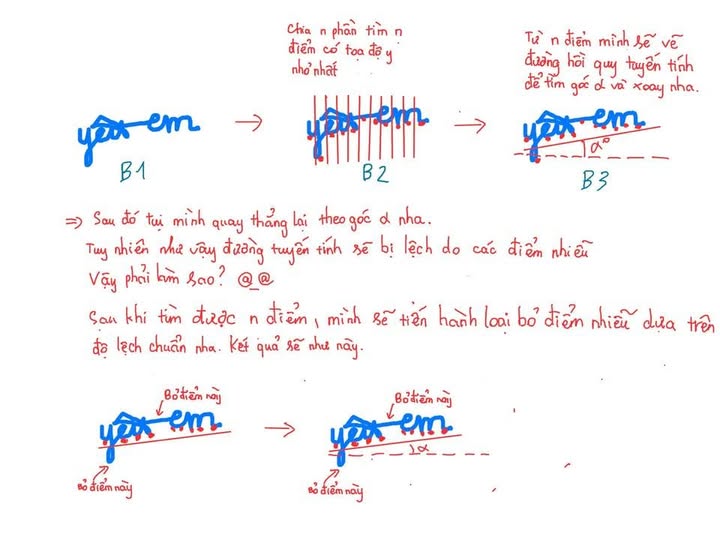 Chia n phần tìm n
điểm có toạ độ y
nhỏ nhất
Từ n điểm mình sẽ vẽ
đường hồi quy tuyến tính
để tìm góc α và xoay nha.
yêu em
yêu em
yêu em
α°
B1
B2
B3
=> Sau đó tụi mình quay thẳng lại theo góc α nha.
Tuy nhiên như vậy đường tuyến tính sẽ bị lệch do các điểm nhiễu
Vậy phải làm sao? @_@
Sau khi tìm được n điểm, mình sẽ tiến hành loại bỏ điểm nhiễu dựa trên
độ lệch chuẩn nha. Kết quả sẽ như này.
Bỏ điểm này
Bỏ điểm này
yêu em
yêu em
α
Bỏ điểm này
Bỏ điểm này